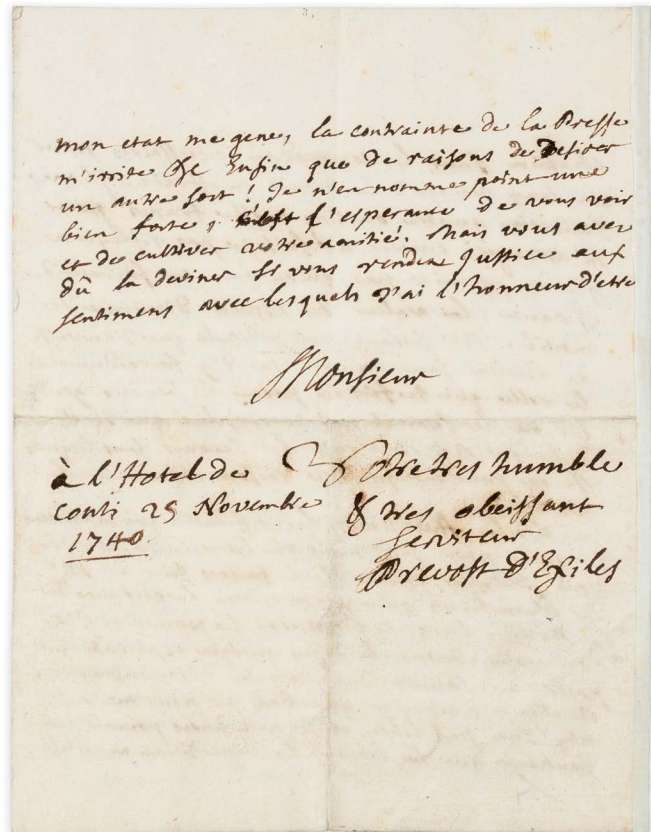 mon etat me gene, la contrainte de la Presse
m'irrite &c Enfin que de raisons de desirer
un autre sort ! Je n'en nomme point une
bien forte, l'esperance de vous voir
et de cultiver votre amitié. Mais vous avez
dû la deviner si vous rendez Justice aux
sentimens avec lesquels j'ai l'honneur d'etre
Monsieur
à l'Hotel de
Conti 25 Novembre
1740.
Votre tres humble
& tres obeissant
serviteur
Prevost d'Exiles